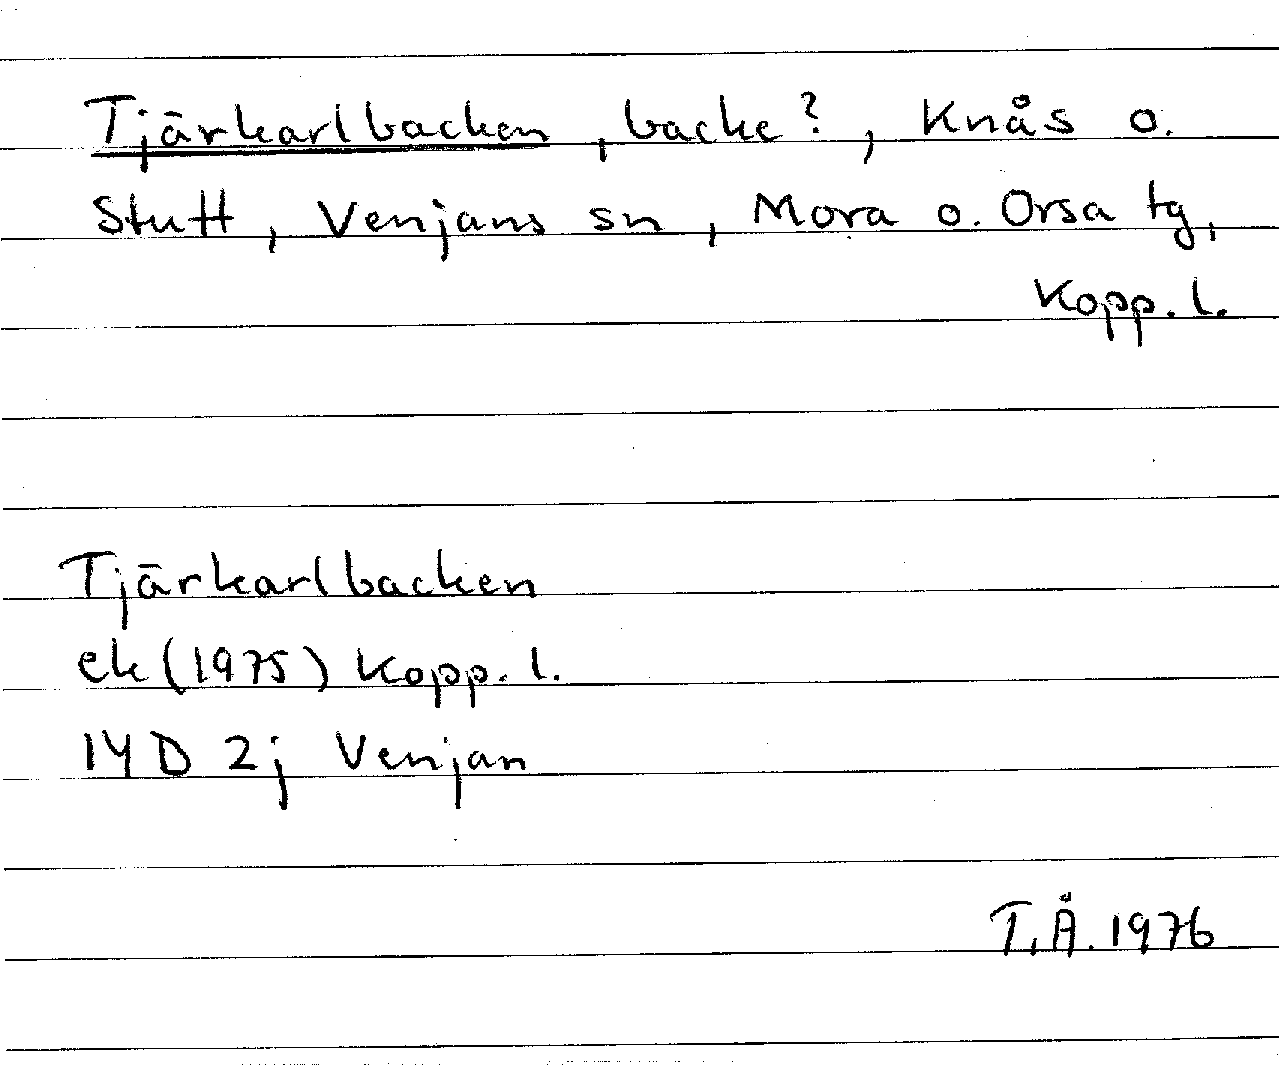 Tjärkarlbacken, backe?, Knås o.
Stutt, Venjans sn, Mora o. Orsa tg,
Kopp. l.
Tjärkarlbacken
ek (1975) Kopp. l.
14 D 2j Venjan
T.Å. 1976